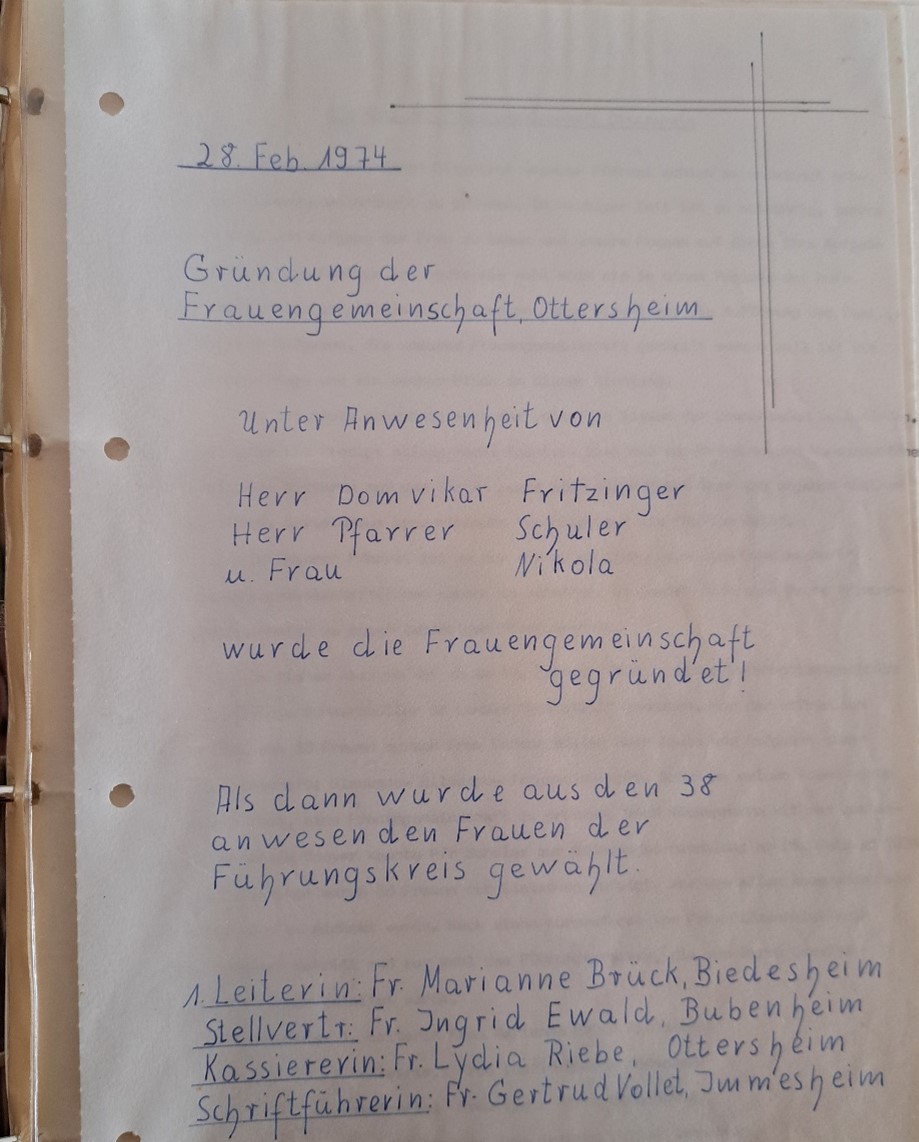 28. Feb. 1974
Gründung der
Frauengemeinschaft, Ottersheim
Unter Anwesenheit von
Herr Domvikar Fritzinger
Herr Pfarrer Schuler
u. Frau Nikola
wurde die Frauengemeinschaft
gegründet!
Als dann wurde aus den 38
anwesenden Frauen der
Führungskreis gewählt.
1. Leiterin: Fr. Marianne Brück, Biedesheim
Stellvertr.: Fr. Ingrid Ewald, Bubenheim
Kassiererin: Fr. Lydia Riebe, Ottersheim
Schriftführerin: Fr. Gertrud Vollet, Immesheim